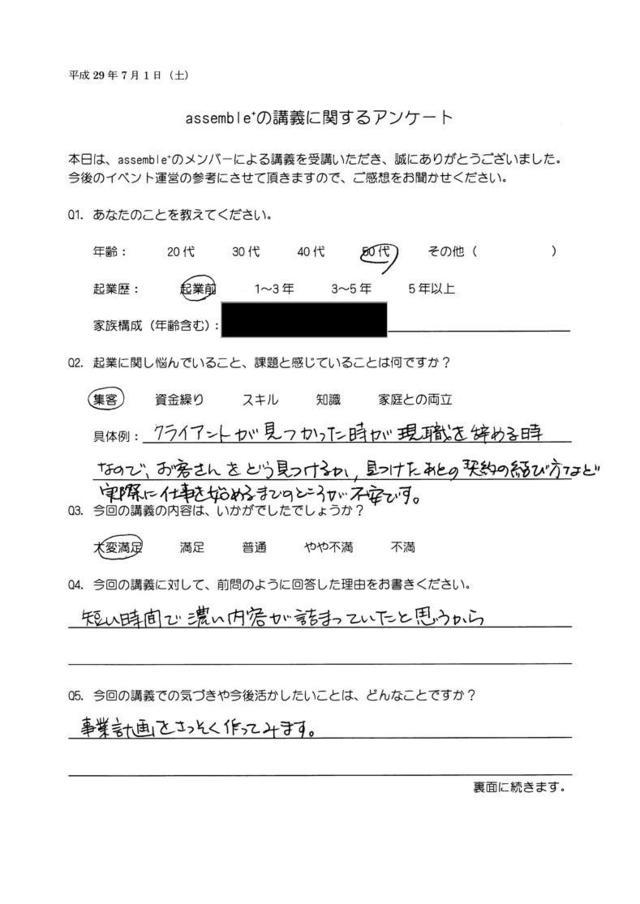 平成 29 年 7 月 1 日（土）
assemble⁺の講義に関するアンケート
本日は、assemble⁺のメンバーによる講義を受講いただき、誠にありがとうございました。
今後のイベント運営の参考にさせて頂きますので、ご感想をお聞かせください。
Q1. あなたのことを教えてください。
年齢： 20 代 30 代 40 代 50 代 その他（ ）
起業歴： 起業前 1～3 年 3～5 年 5 年以上
家族構成（年齢含む）：
Q2. 起業に関し悩んでいること、課題と感じていることは何ですか？
集客 資金繰り スキル 知識 家庭との両立
具体例： クライアントが見つかった時が現職を辞める時
なので、お客さんをどう見つけるか、見つけたあとの契約の結び方など
実際に仕事を始めるまでのところが不安です。
Q3. 今回の講義の内容は、いかがでしたでしょうか？
大変満足 満足 普通 やや不満 不満
Q4. 今回の講義に対して、前問のように回答した理由をお書きください。
短い時間で濃い内容が詰まっていたと思うから
Q5. 今回の講義での気づきや今後活かしたいことは、どんなことですか？
事業計画をさっそく作ってみます。
裏面に続きます。